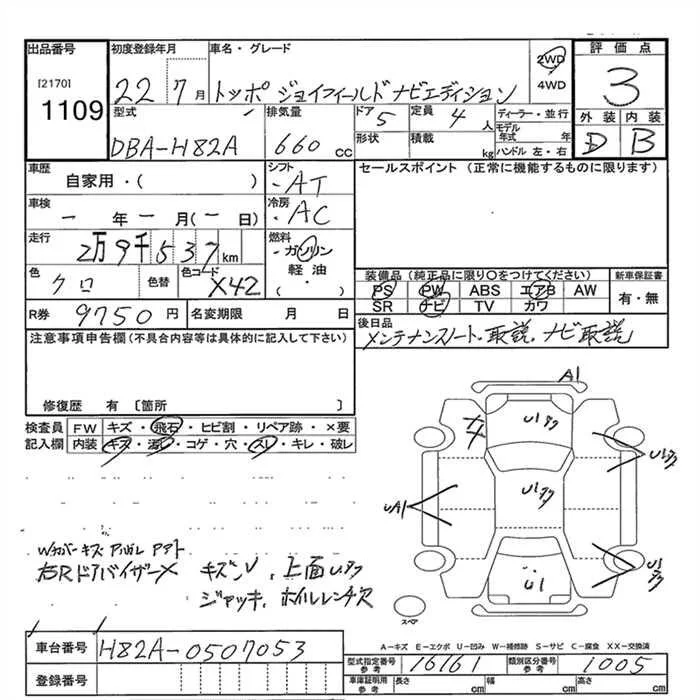 出品番号 初度登録年月 車名・グレード 2WD 4WD 評価点
[2170] 1109 22 7月 トッポ ジョイフィールド ナビエディション 3
型式 排気量 ドア 定員 ディーラー・並行 外装 内装
DBA-H82A 660 CC 5 4人 モデル年式 年 D B
形状 積載 kg ハンドル 左・右
車歴 シフト セールスポイント (正常に機能するものに限ります)
自家用・( ) ・AT
車検 冷房
一年一月(一日) ・AC
走行 燃料
2万9千537km ・ガソリン
色 色替 色コード 軽油
クロ X42 ・( )
装備品 (純正品に限り○をつけてください) 新車保証書
PS PW ABS エアB AW 有・無
SR ナビ TV カワ
R券 9750円 名変期限 月 日
後日品
メンテナンスノート・取説、ナビ取説
注意事項申告欄 (不具合内容等は具体的に記入して下さい)
修復歴 有 〔箇所 〕
検査員 FW キズ・飛石・ヒビ割・リペア跡・×要
記入欄 内装 キズ・汚レ・コゲ・穴・スレ・キレ・破レ
A1
U1タク
U1タク
UA1
U1タク
U1
U1タク
スペア
Wカバーキズ
右Rドアバイザー× キズ、上面
ジャッキ、ホイルレンチ欠
A-キズ E-エクボ U-凹み W-補修跡 S-サビ C-腐食 XX-交換済
車台番号 H82A-0507053
型式指定番号 参考 16161 類別区分番号 参考 1005
登録番号
車庫証明用 参考 長さ cm 幅 cm 高さ cm